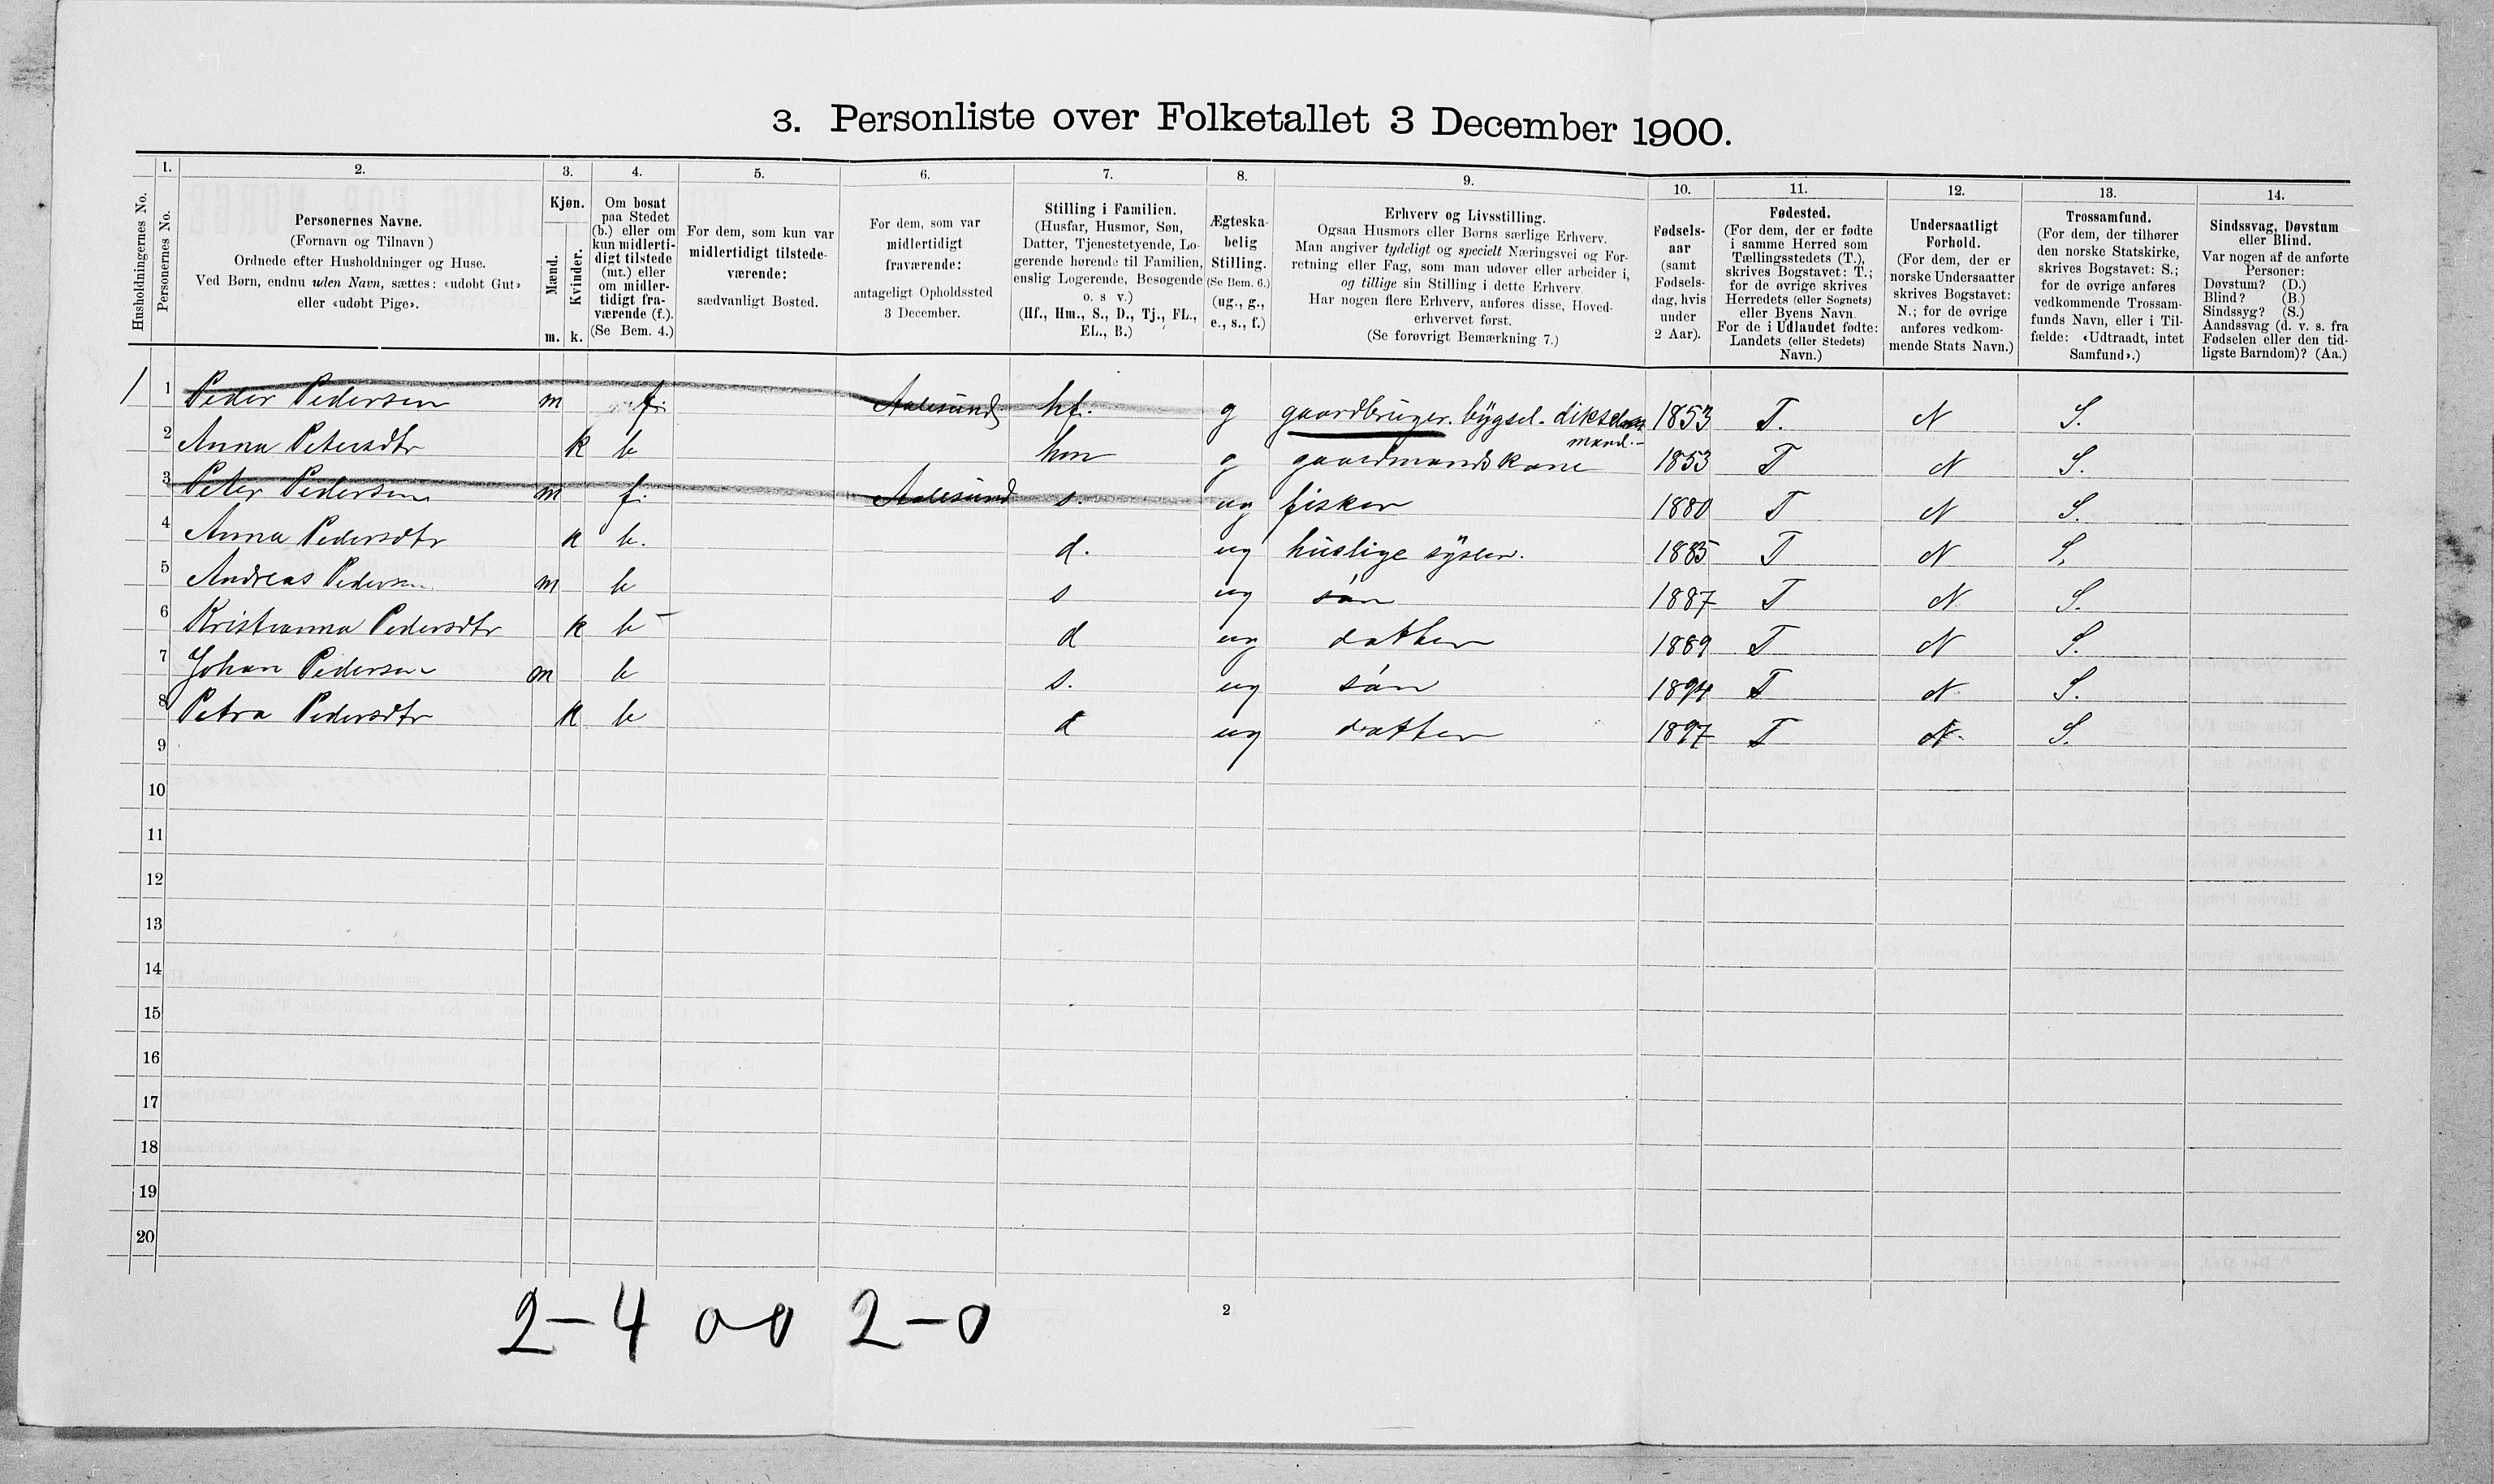 3. Personliste over Folketallet 3 December 1900.
Husholdningernes No.
1.
Personernes No.
2.
Personernes Navne.
(Fornavn og Tilnavn)
Ordnede efter Husholdninger og Huse.
Ved Børn, endnu uden Navn, sættes: «udøbt Gut»
eller «udøbt Pige».
3.
Kjøn.
Mænd.
Kvinder.
m. k.
4.
Om bosat
paa Stedet
(b.) eller om
kun midlerti-
digt tilstede
(mt.) eller
om midler-
tidigt fra-
værende (f.).
(Se Bem. 4.)
5.
For dem, som kun var
midlertidigt tilstede-
værende:
sædvanligt Bosted.
6.
For dem, som var
midlertidigt
fraværende:
antageligt Opholdssted
3 December.
7.
Stilling i Familien.
(Husfar, Husmor, Søn,
Datter, Tjenestetyende, Lo-
gerende hørende til Familien,
enslig Logerende, Besøgende
o. s v.)
(Hf., Hm., S., D., Tj., FL.,
EL., B.)
8.
Ægteska-
belig
Stilling.
(Se Bem. 6.)
(ug., g.,
e., s., f.)
9.
Erhverv og Livsstilling.
Ogsaa Husmors eller Børns særlige Erhverv.
Man angiver tydeligt og specielt Næringsvei og For-
retning eller Fag, som man udøver eller arbeider i,
og tillige sin Stilling i dette Erhverv.
Har nogen flere Erhverv, anføres disse, Hoved-
erhvervet først.
(Se forøvrigt Bemærkning 7.)
10.
Fødsels-
aar
(samt
Fødsels-
dag, hvis
under
2 Aar).
11.
Fødested.
(For dem, der er fødte
i samme Herred som
Tællingsstedets (T.),
skrives Bogstavet: T.;
for de øvrige skrives
Herredets (eller Sognets)
eller Byens Navn.
For de i Udlandet fødte:
Landets (eller Stedets)
Navn.)
12.
Undersaatligt
Forhold.
(For dem, der er
norske Undersaatter
skrives Bogstavet:
N.; for de øvrige
anføres vedkom-
mende Stats Navn.)
13.
Trossamfund.
(For dem, der tilhører
den norske Statskirke,
skrives Bogstavet: S.;
for de øvrige anføres
vedkommende Trossam-
funds Navn, eller i Til-
fælde: «Udtraadt, intet
Samfund».)
14.
Sindssvag, Døvstum
eller Blind.
Var nogen af de anførte
Personer:
Døvstum? (D.)
Blind? (B.)
Sindssyg? (S.)
Aandssvag (d. v. s. fra
Fødselen eller den tid-
ligste Barndom)? (Aa.)
1 1 Peder Pedersen m f. Aalesund hf. g gaardbruger. bygsel. 1853 T. N S.
mand.
2 Anna Petersdtr k b hm g gaardmandskone 1853 T N S.
3 Peter Pedersen m f. Aalesund s. ug fisker 1880 T N S.
4 Anna Pedersdtr k b. d. ug huslige sysler. 1885 T N S.
5 Andreas Pedersen m b s ug søn 1887 T N S.
6 Kristianna Pedersdtr k b d ug datter 1889 T N S.
7 Johan Pedersen m b s. ug søn 1894 T N S.
8 Petra Pedersdtr k b d ug datter 1897 T N S.
9
10
11
12
13
14
15
16
17
18
19
20
2-4 00 2-0
2